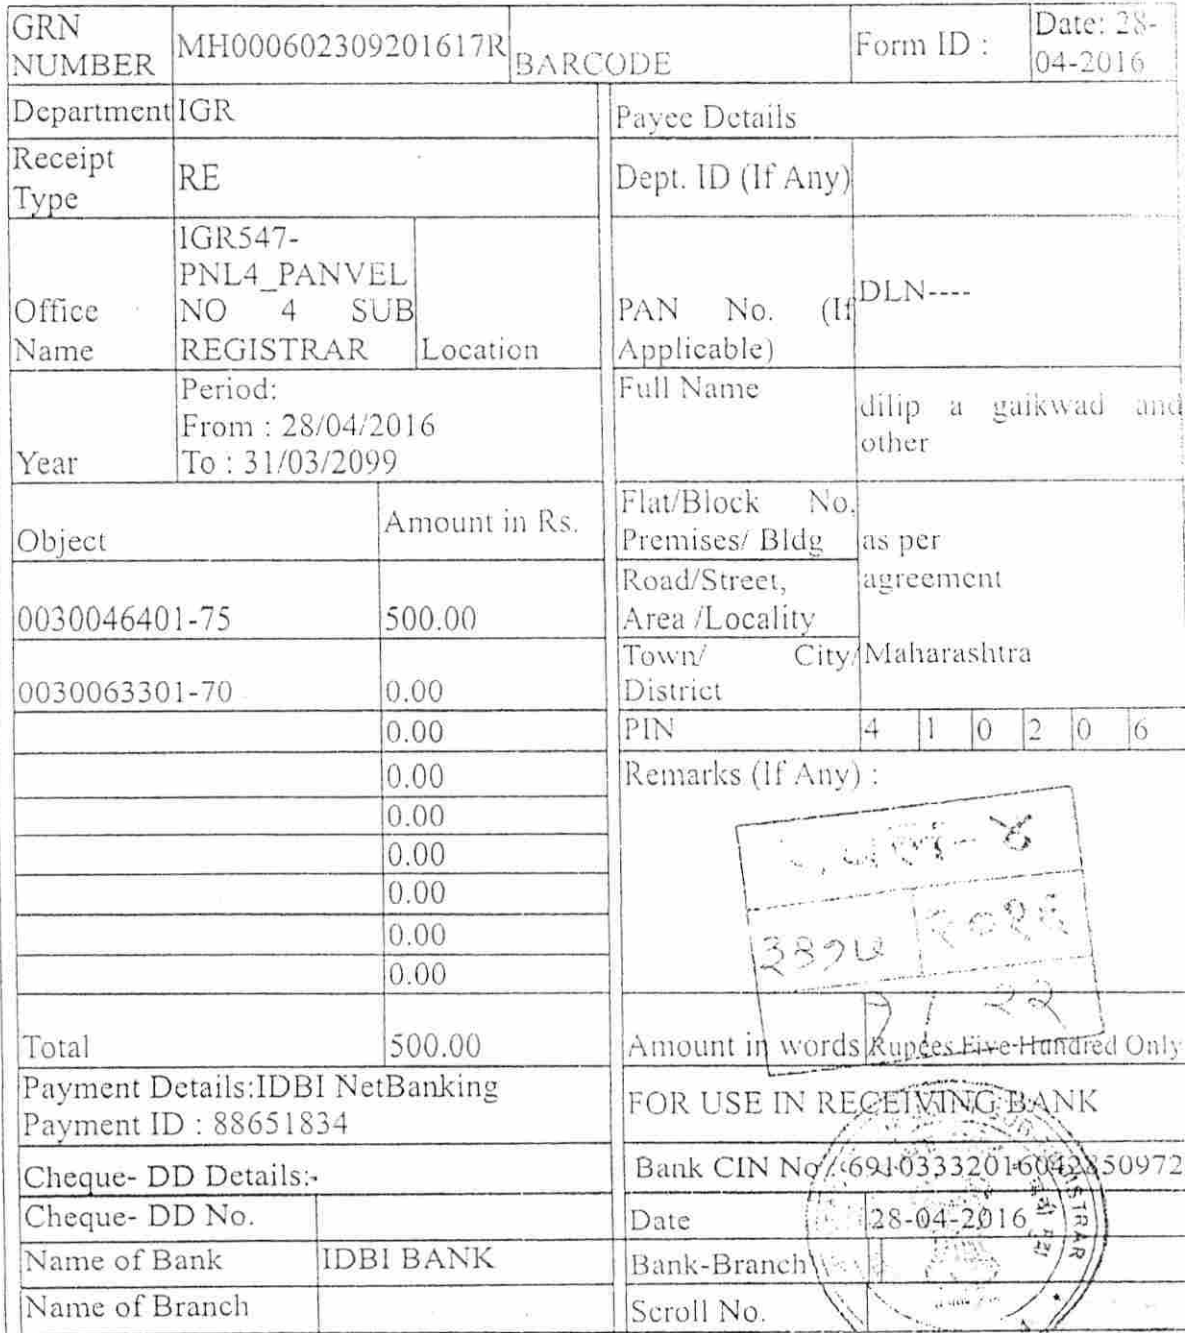 GRN NUMBER MH000602309201617R BARCODE Form ID : Date: 28-04-2016
Department IGR Payee Details
Receipt Type RE Dept. ID (If Any)
Office Name IGR547-PNL4_PANVEL NO 4 SUB REGISTRAR Location PAN No. (If Applicable) DLN----
Year Period: From : 28/04/2016 To : 31/03/2099 Full Name dilip a gaikwad and other
Object Amount in Rs. Flat/Block No, Premises/ Bldg as per agreement
0030046401-75 500.00 Road/Street, Area /Locality
0030063301-70 0.00 Town/ City/ District Maharashtra
0.00 PIN 4 1 0 2 0 6
0.00 Remarks (If Any) :
0.00
0.00
0.00
0.00
0.00
पवल-४
३४७५ २०१६
२२
Total 500.00 Amount in words Rupees Five Hundred Only
Payment Details:IDBI NetBanking
Payment ID : 88651834
FOR USE IN RECEIVING BANK
Cheque- DD Details:- Bank CIN No : 69103332016042850972
Cheque- DD No. Date 28-04-2016
Name of Bank IDBI BANK Bank-Branch
Name of Branch Scroll No.